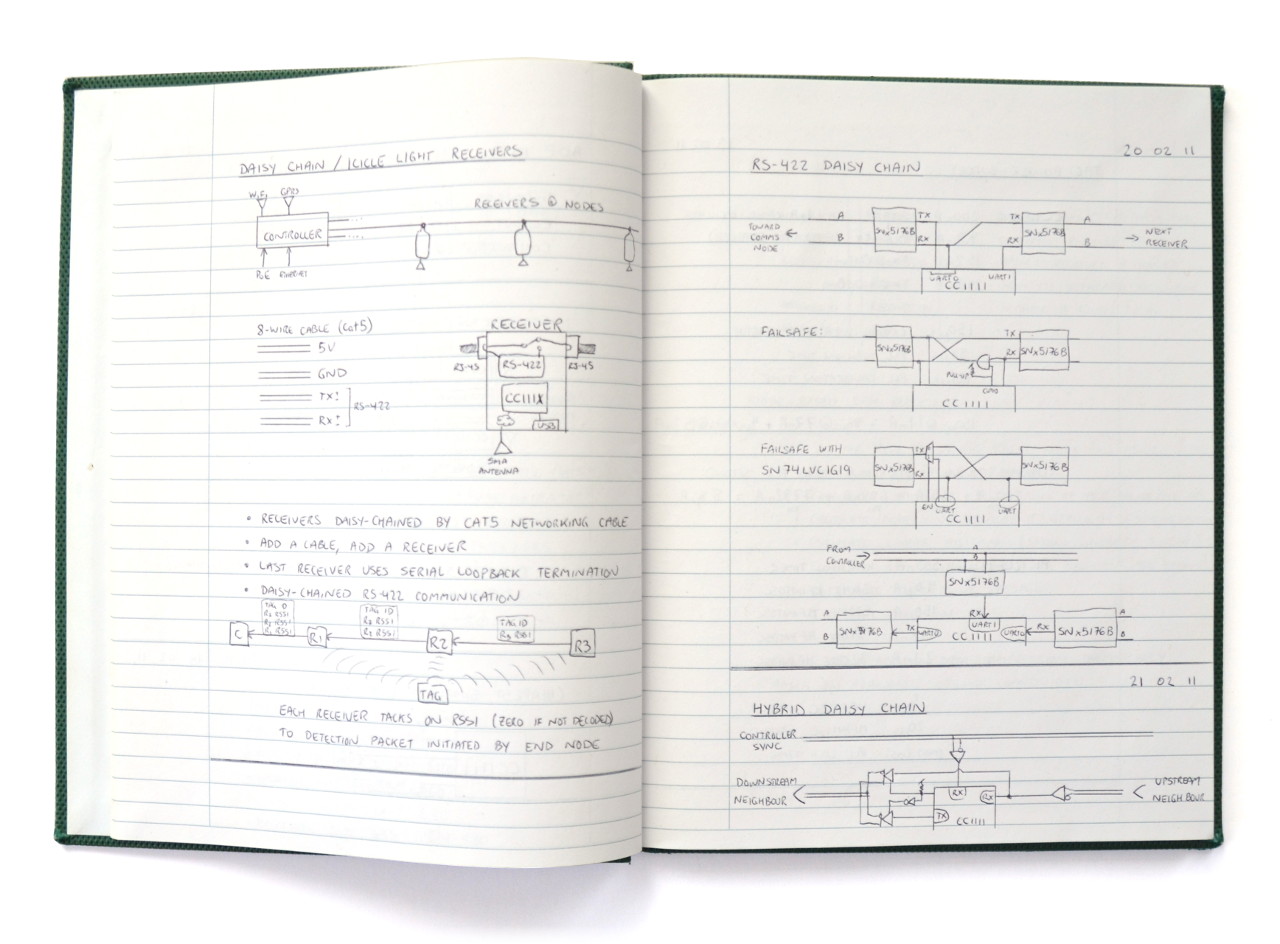 DAISY CHAIN / ICICLE LIGHT RECEIVERS
WiFi GPRS
RECEIVERS @ NODES
CONTROLLER
PoE ETHERNET
8-WIRE CABLE (Cat5)
5V
GND
TX±
RX±
RS-422
RECEIVER
RJ-45 RS-422 RJ-45
CC111X
USB
SMA
ANTENNA
• RECEIVERS DAISY-CHAINED BY CAT5 NETWORKING CABLE
• ADD A CABLE, ADD A RECEIVER
• LAST RECEIVER USES SERIAL LOOPBACK TERMINATION
• DAISY-CHAINED RS-422 COMMUNICATION
TAG ID
R3 RSSI
R2 RSSI
R1 RSSI
TAG ID
R3 RSSI
R2 RSSI
TAG ID
R3 RSSI
C R1 R2 R3
TAG
EACH RECEIVER TACKS ON RSSI (ZERO IF NOT DECODED)
TO DETECTION PACKET INITIATED BY END NODE
20 02 11
RS-422 DAISY CHAIN
TOWARD
COMMS
NODE
A
B
SNx5176B
TX
RX
TX
RX
SNx5176B
A
B
NEXT
RECEIVER
UART0 UART1
CC1111
FAILSAFE:
SNx5176B
TX
RX
SNx5176B
GPIO
CC1111
FAILSAFE WITH
SN74LVC1G19
SNx5176B
TX
RX
SNx5176B
EN UART UART
CC1111
FROM
CONTROLLER
A
B
SNx5176B
RX
UART1
A
B
SNx5176B
TX
UART0
CC1111
UART0
RX
SNx5176B
A
B
21 02 11
HYBRID DAISY CHAIN
CONTROLLER
SYNC
DOWNSTREAM
NEIGHBOUR
RX
RX
TX
CC1111
UPSTREAM
NEIGHBOUR